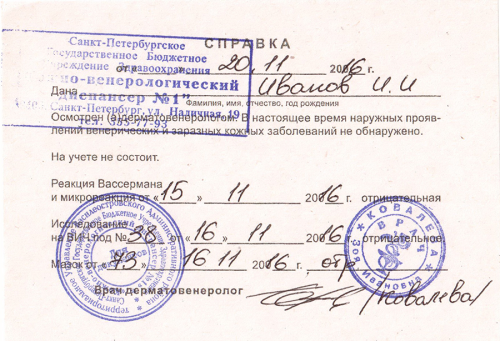 Санкт-Петербургское
Государственное Бюджетное
Учреждение Здравоохранения
венерологический
диспансер №1"
Санкт-Петербург, ул. Наличная, 19
тел. 355-77-93
СПРАВКА
20.11 2016г.
Дана Иванов И.И
Фамилия, имя, отчество, год рождения
Осмотрен (а) дерматовенерологом. В настоящее время наружных прояв-
лений венерических и заразных кожных заболеваний не обнаружено.
На учете не состоит.
Реакция Вассермана
и микрореакция от «15» 11 2016 г. отрицательная
Исследование
на ВИЧ под № 38 от «16» 11 2016 г. отрицательное
Мазок от «73» 16 11 2016 г. отр
Врач дерматовенеролог Ковалева
КОВАЛЕВА
ВРАЧ
Ивановна